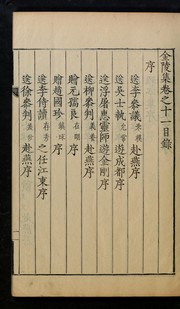 金陵集卷之十一目錄
序
送李參議 赴燕序
送吳士執 遊成都序
送浮屠惠靈師遊金剛序
送柳參判 義養 赴燕序
贈元孺良 在明 序
贈趙國珍 鎭球 序
送李侍讀 存秀 之任江東序
送徐參判 赴燕序